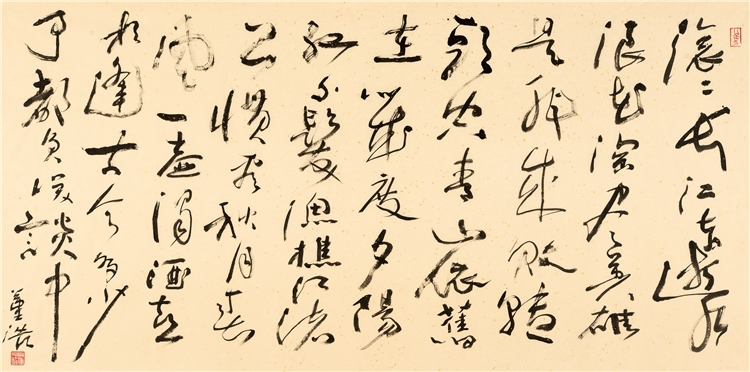 滚滚长江东逝水
浪花淘尽英雄
是非成敗轉
頭空青山依舊
在幾度夕陽
红白髮漁樵江渚
上惯看秋月春
風一壶濁酒喜
相逢古今多少
事都付笑談中
董浩